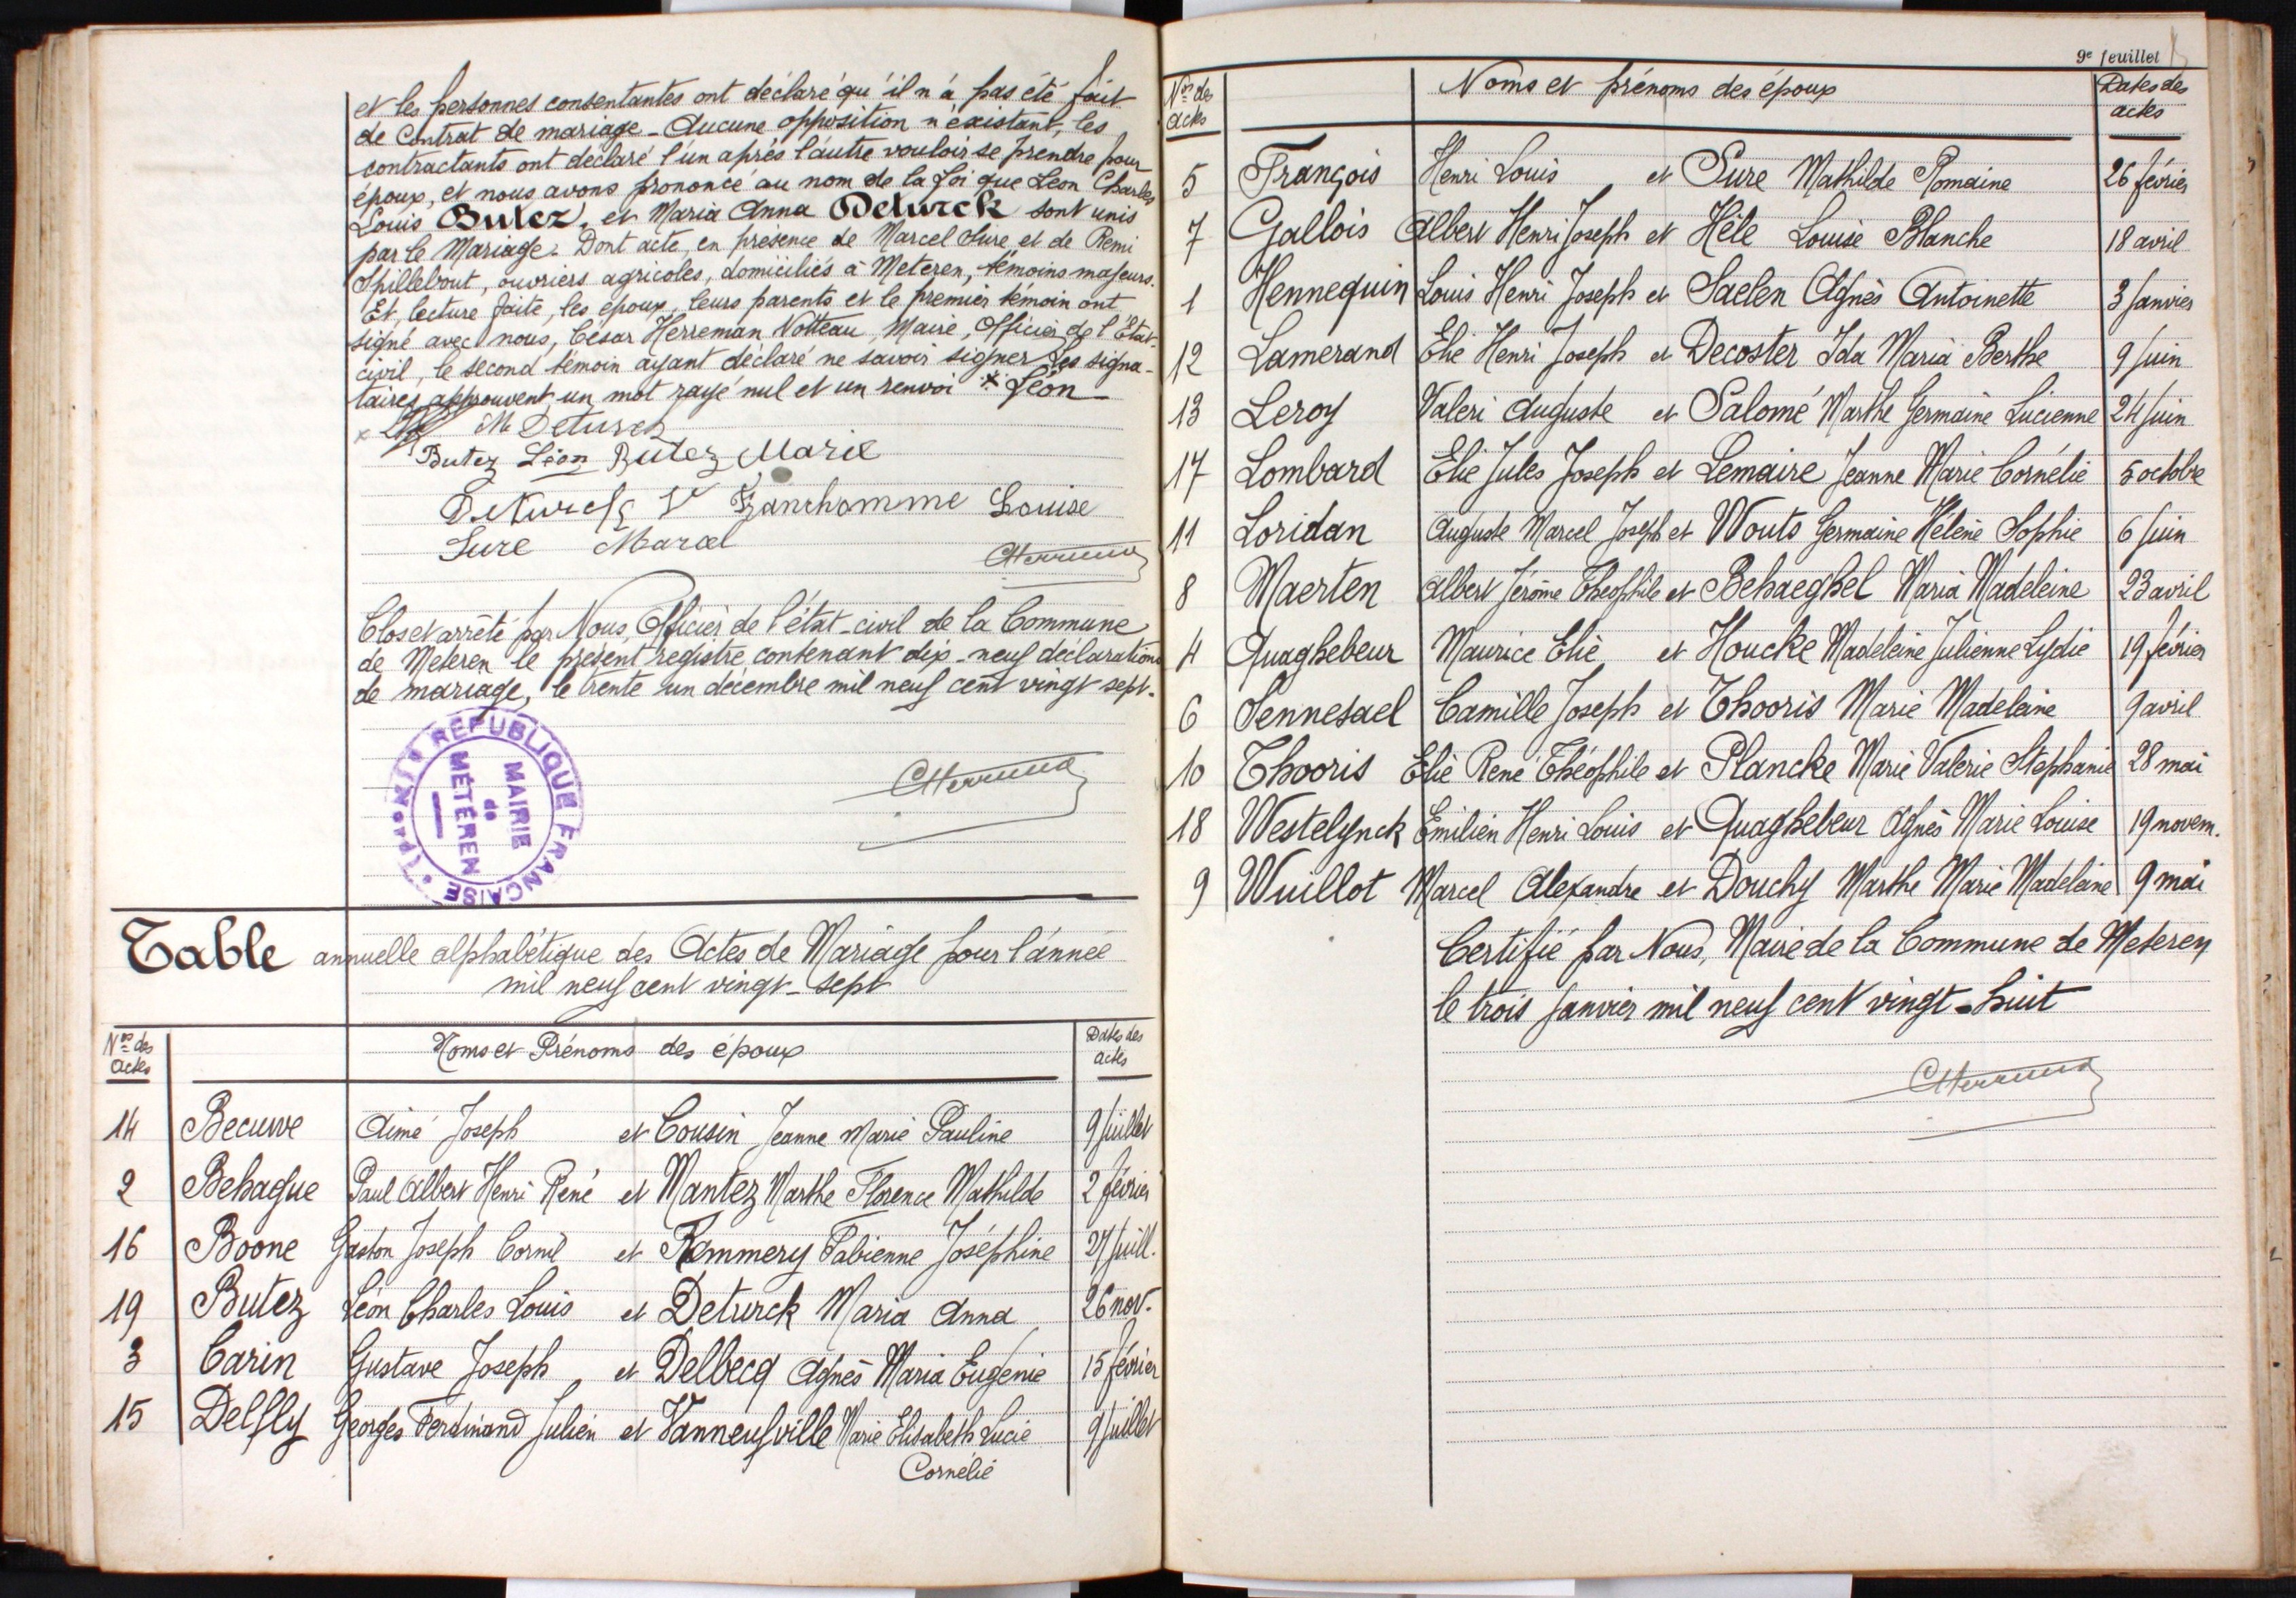 et les personnes consentantes ont déclaré qu'il n'a pas été fait
de contrat de mariage - Aucune opposition n'éxistant, les
contractants ont déclaré l'un après l'autre vouloir se prendre pour
époux, et nous avons prononcé au nom de la Loi que Léon Charles
Louis Butez, et Maria Anna Deturck sont unis
par le Mariage. Dont acte, en présence de Marcel Sure et de Remi
Spillebout, ouvriers agricoles, domiciliés à Meteren, témoins majeurs.
Et, lecture faite, les époux, leurs parents et le premier témoin ont
signé avec nous, César Herreman Notteau, Maire, Officier de l'Etat-
civil, le second témoin ayant déclaré ne savoir signer Les signa-
taires approuvent un mot rayé nul et un renvoi * Léon
M Deturck
Butez Léon Butez Marie
Deturck V Franchomme Louise
Sure Marcel
CHerreman
Clos et arrêté par Nous, Officier de l'état-civil de la Commune
de Meteren le présent registre contenant dix-neuf déclarations
de mariage, le trente un décembre mil neuf cent vingt sept.
REPUBLIQUE FRANÇAISE (NORD)
MAIRIE
de
MÉTÉREN
CHerreman
Table annuelle alphabétique des Actes de Mariage pour l'année
mil neuf cent vingt-sept
Nos des actes Noms et Prénoms des époux Dates des actes
14 Becuwe Aimé Joseph et Cousin Jeanne Marie Pauline 9 juillet
2 Behague Paul Albert Henri René et Mantez Marthe Florence Mathilde 2 février
16 Boone Gaston Joseph Cornil et Remmery Fabienne Joséphine 27 juill.
19 Butez Léon Charles Louis et Deturck Maria Anna 26 nov.
3 Carin Gustave Joseph et Delbecq Agnès Maria Eugénie 15 février
15 Delfly Georges Ferdinand Julien et Vanneufville Marie Elisabeth Lucie 9 juillet
Cornélie
9e feuillet
Nos des actes Noms et prénoms des époux Dates des actes
5 François Henri Louis et Sure Mathilde Romaine 26 février
7 Gallois Albert Henri Joseph et Hèle Louise Blanche 18 avril
1 Hennequin Louis Henri Joseph et Saelen Agnès Antoinette 3 Janvier
12 Lamerand Elie Henri Joseph et Decoster Ida Maria Berthe 9 juin
13 Leroy Valeri Auguste et Salomé Marthe Germaine Lucienne 24 juin
17 Lombard Elie Jules Joseph et Lemaire Jeanne Marie Cornélie 5 octobre
11 Loridan Auguste Marcel Joseph et Wouts Germaine Hélène Sophie 6 juin
8 Maerten Albert Jérôme Théophile et Behaeghel Maria Madeleine 23 avril
4 Quaghebeur Maurice Elie et Houcke Madeleine Julienne Lydie 19 février
6 Sennesael Camille Joseph et Thooris Marie Madeleine 9 avril
10 Thooris Elie René Théophile et Plancke Marie Valérie Stéphanie 28 mai
18 Westelynck Emilien Henri Louis et Quaghebeur Agnès Marie Louise 19 novem.
9 Wuillot Marcel Alexandre et Douchy Marthe Marie Madeleine 9 mai
Certifié par Nous, Maire de la Commune de Meteren
le trois janvier mil neuf cent vingt-huit
CHerreman